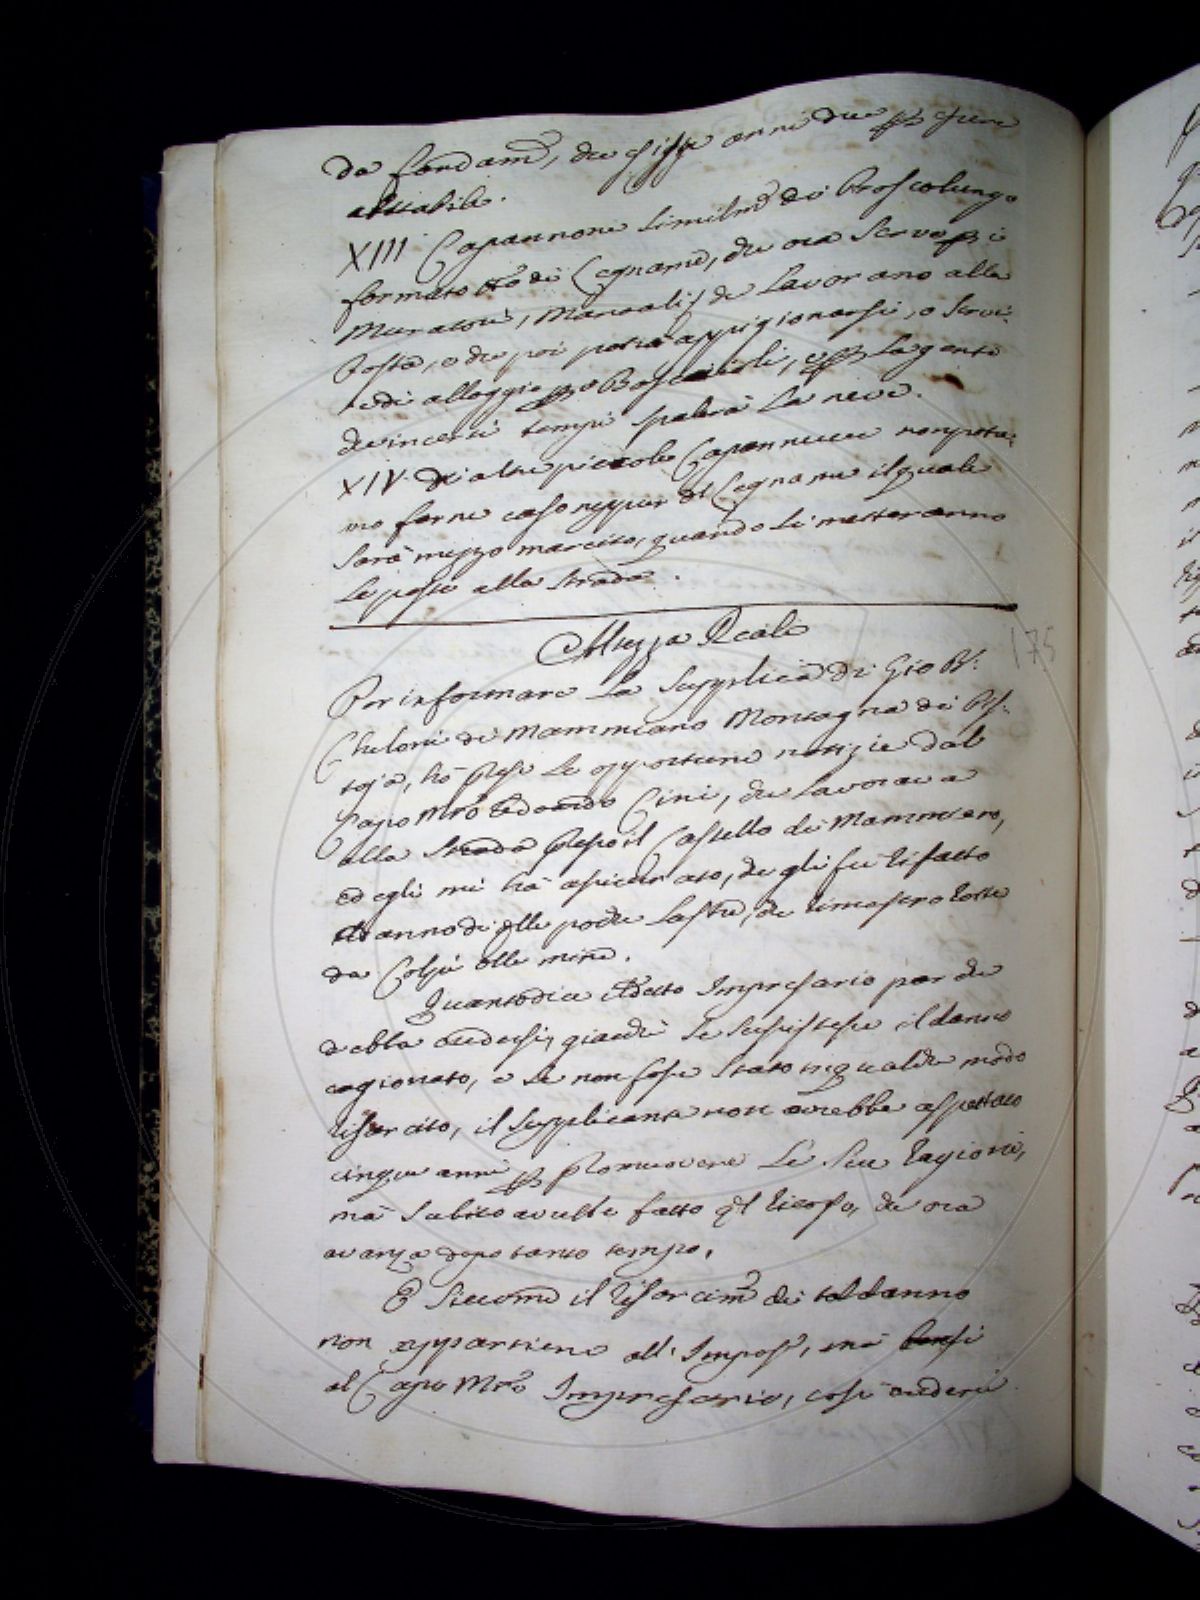 da fondam:, che esigge anni due p essere
abitabile.
XIII Capannone similm: di Boscolungo
formato tto di Legname, che ora serve p i
Muratori, Manoali, che lavorano alla
Posta, e che poi potrà appigionarsi, o servi-
re di alloggio p Boscaioli, e p la gente
che in certi tempi spalerà la neve.
XIV. Di altre piccole Capannucce non potia-
mo farne caso neppur del Legname il quale
sarà mezzo marcito, quando si metteranno
le poste alla strada.
Altezza Reale
175
Per informare la Supplica di Gio B:
Cheloni di Mammiano Montagna di Pis-
toja, hò prese le opportune notizie dal
Capo Mro Edoardo Cini, che lavorava
alla Strada presso il Castello di Mammiano,
ed egli mi hà assicurato, che gli fù rifatto
il danno di qlle poche lastre, che rimasero rotte
da Colpi delle mine.
Quanto dice il detto Impresario par che
debba credersi, giacchè se sussistesse il danno
cagionato, e se non fosse stato in qualche modo
risarcito, il Supplicante non avrebbe aspettato
cinque anni p promuovere le sue ragioni,
mà subito avrebbe fatto ql ricorso, che ora
avanza dopo tanto tempo.
E siccome il risarcim: di tal danno
non appartiene all' Impos:, mà bensi
al Capo Mro Impresario, così crederei